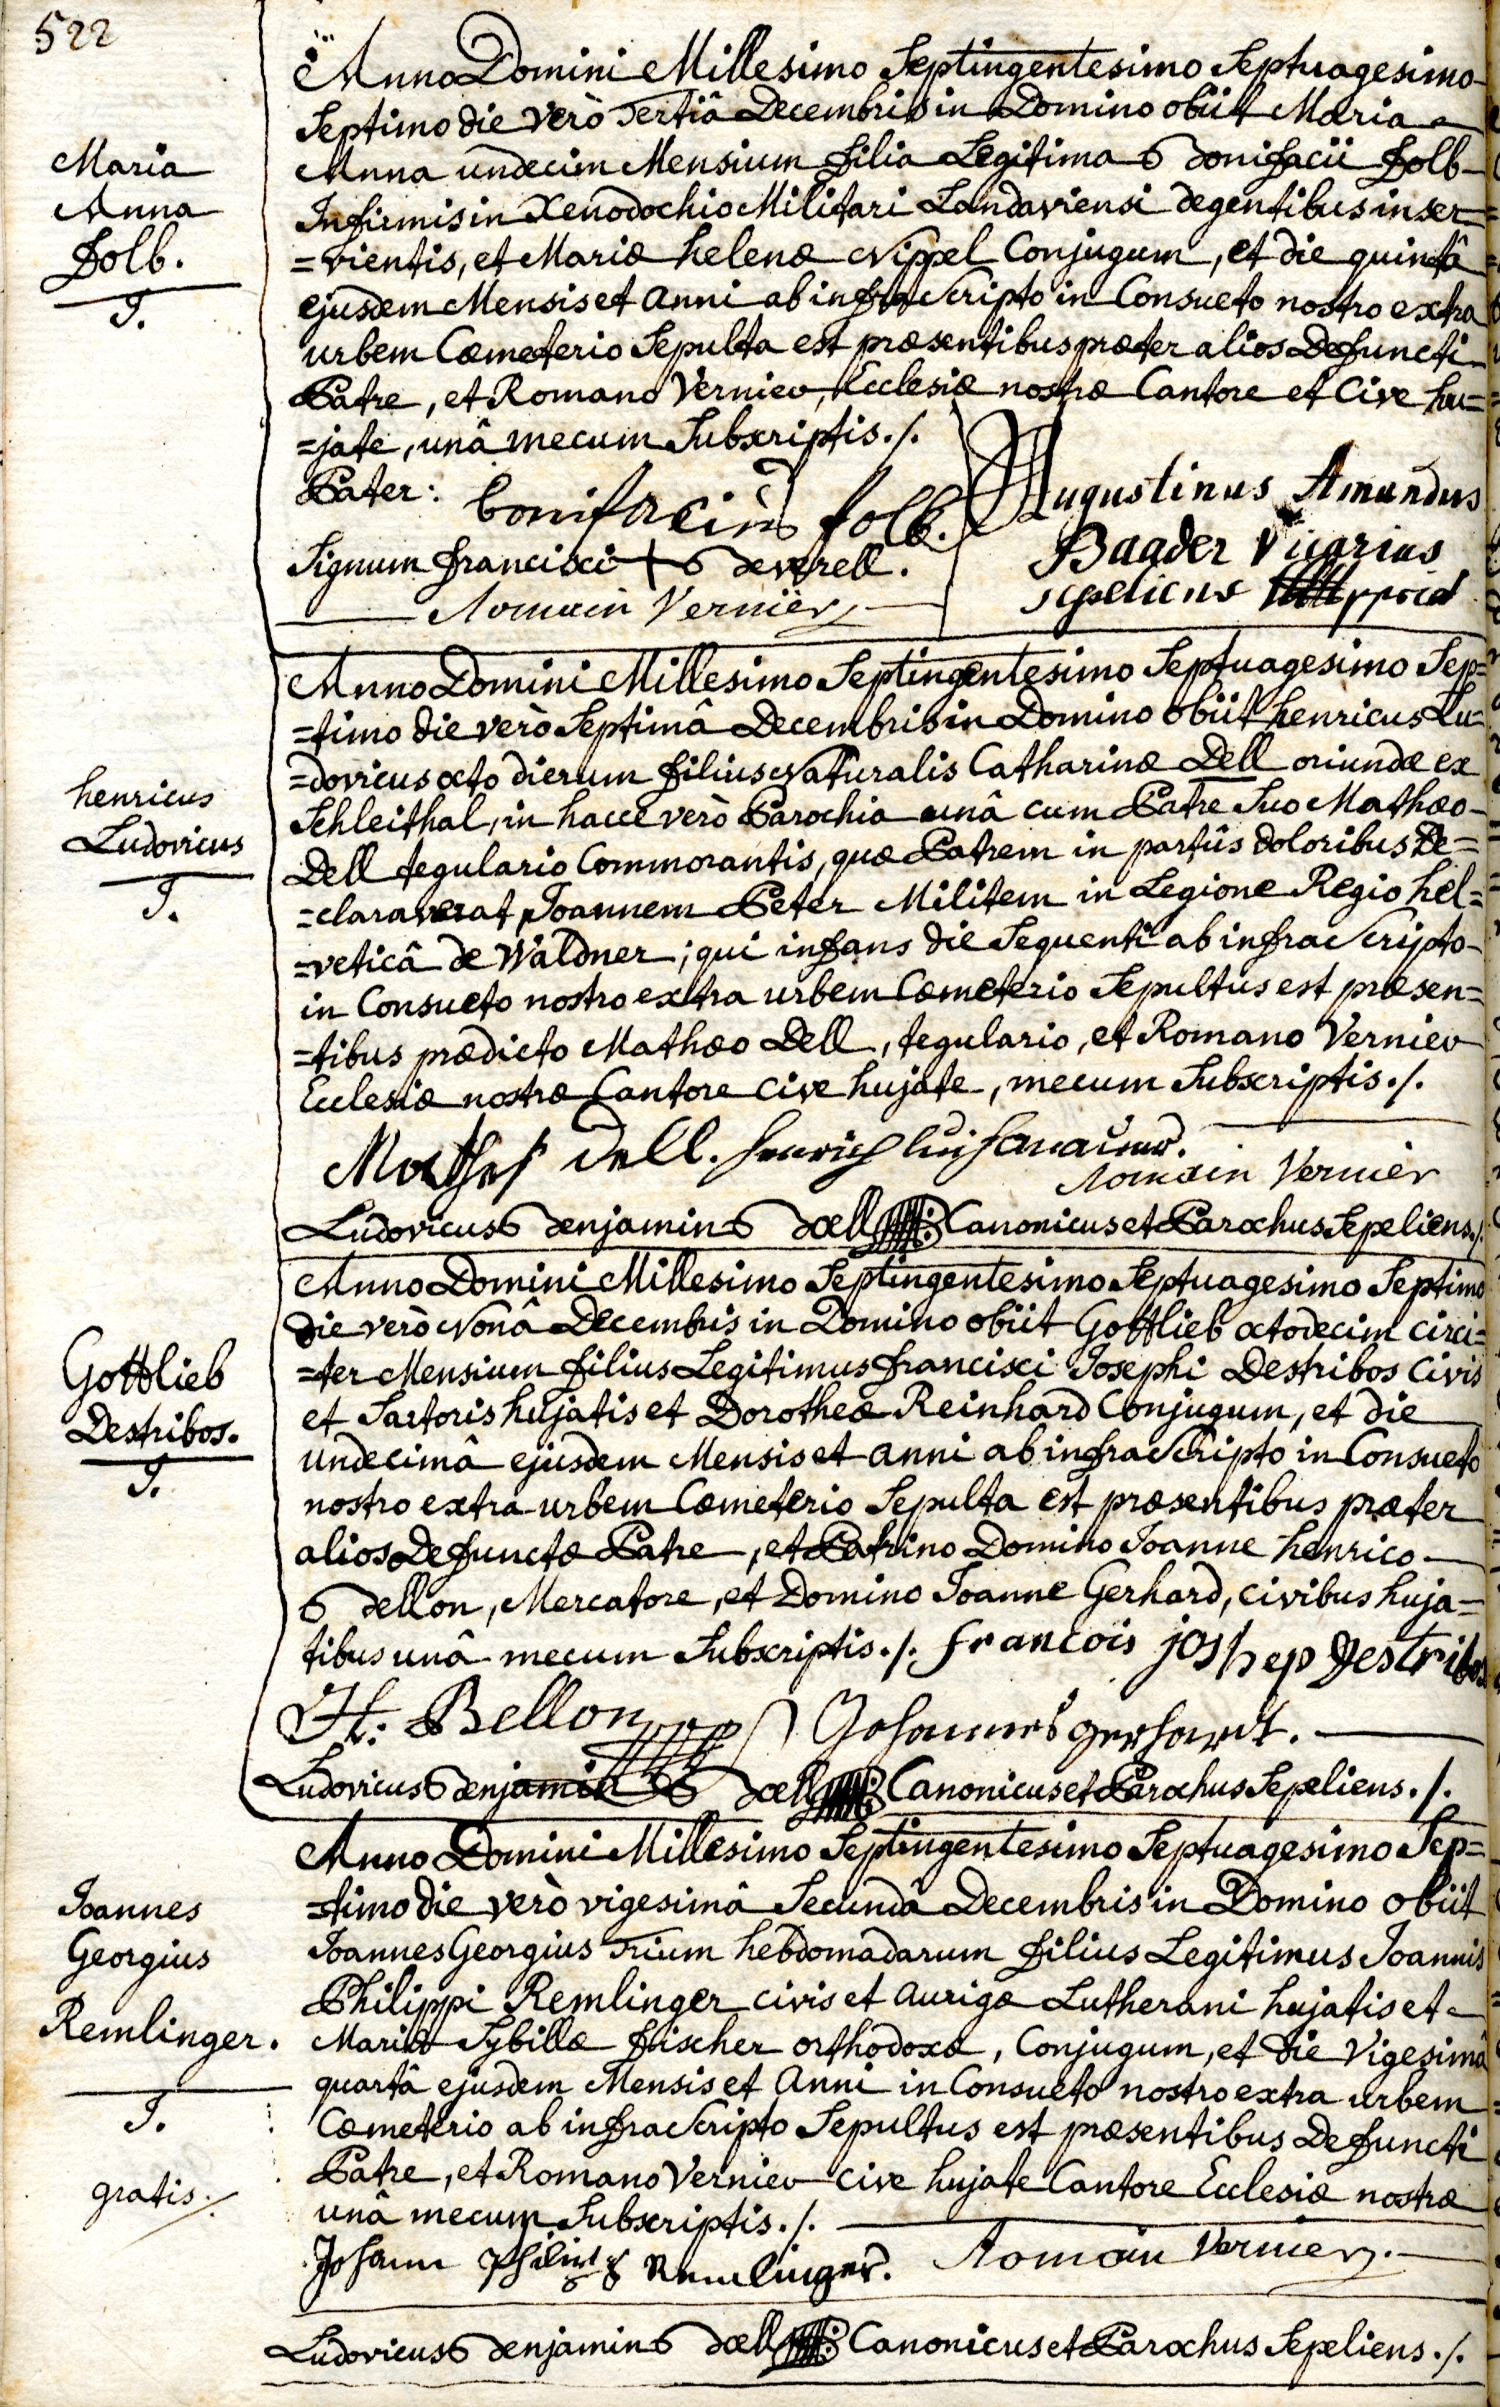 522
Anno Domini Millesimo Septingentesimo Septuagesimo
Septimo die verò Tertiâ Decembris in Domino obiit Maria
Maria
Anna
Folb.
J.
Anna undecim Mensium filia Legitima Bonifacii Folb
Infirmis in Xenodochio Militari Landaviensi degentibus inser=
=vientis, et Mariæ helenæ Nippel Conjugum, et die quintâ
ejusdem Mensis et anni ab infra Scripto in Consueto nostro extra
urbem Cœmeterio Sepulta est præsentibus præter alios Defuncti
Patre, et Romano Vernier, Ecclesiæ nostræ Cantore et Cive hu=
=jate, unâ mecum Subscriptis./.
Pater: bonifacius folb.
Signum Francisci + Beverell.
Romain Vernier
Augustinus Amandus
Baader Vicarius
sepeliens
Anno Domini Millesimo Septingentesimo Septuagesimo Sep=
=timo die verò Septimâ Decembris in Domino obiit henricus Lu=
=dovicus octo dierum filius Naturalis Catharinæ Dell oriundæ ex
henricus
Ludovicus
J.
Schleithal, in hacce verò Parochia unâ cum Patre Suo Mathæo
Dell tegulario Commorantis, quæ Patrem in partûs doloribus De=
=claraverat, Joannem Peter Militem in Legione Regio hel=
=veticâ de Waldner; qui infans die Sequenti ab infra Scripto
in Consueto nostro extra urbem Cœmeterio Sepultus est præsen=
=tibus prædicto Mathæo Dell, tegulario, et Romano Vernier
Ecclesiæ nostræ Cantore Cive hujate, mecum Subscriptis./.
Mathes Dell.
Romain Vernier
Ludovicus Benjamin Bœll Canonicus et Parochus Sepeliens./.
Anno Domini Millesimo Septingentesimo Septuagesimo Septimo
die verò Nonâ Decembris in Domino obiit Gottlieb octodecim circi=
Gottlieb
Destribos.
J.
=ter Mensium filius Legitimus Francisci Josephi Destribos Civis
et Sartoris hujatis et Dorotheæ Reinhard Conjugum, et die
undecimâ ejusdem Mensis et anni ab infra Scripto in Consueto
nostro extra urbem Cœmeterio Sepulta est præsentibus præter
alios Defunctæ Patre, et Patrino Domino Joanne henrico
Bellon, Mercatore, et Domino Joanne Gerhard, civibus huja=
tibus unâ mecum Subscriptis./. francois joshep destribos
H: Bellon Johannes gerhardt.
Ludovicus Benjamin Bœll Canonicus et Parochus Sepeliens./.
Anno Domini Millesimo Septingentesimo Septuagesimo Sep=
=timo die verò vigesimâ Secundâ Decembris in Domino obiit
Joannes
Georgius
Remlinger.
J.
gratis./.
Joannes Georgius trium hebdomadarum filius Legitimus Joannis
Philippi Remlinger civis et aurigæ Lutherani hujatis et
Mariæ Sybillæ Fischer orthodoxæ, Conjugum, et die Vigesimâ
quartâ ejusdem Mensis et Anni in Consueto nostro extra urbem
Cœmeterio ab infra Scripto Sepultus est præsentibus Defuncti
Patre, et Romano Vernier cive hujate Cantore Ecclesiæ nostræ
unâ mecum Subscriptis./.
Johann Philips Remlinger. Romain Vernier.
Ludovicus Benjamin Bœll Canonicus et Parochus Sepeliens./.